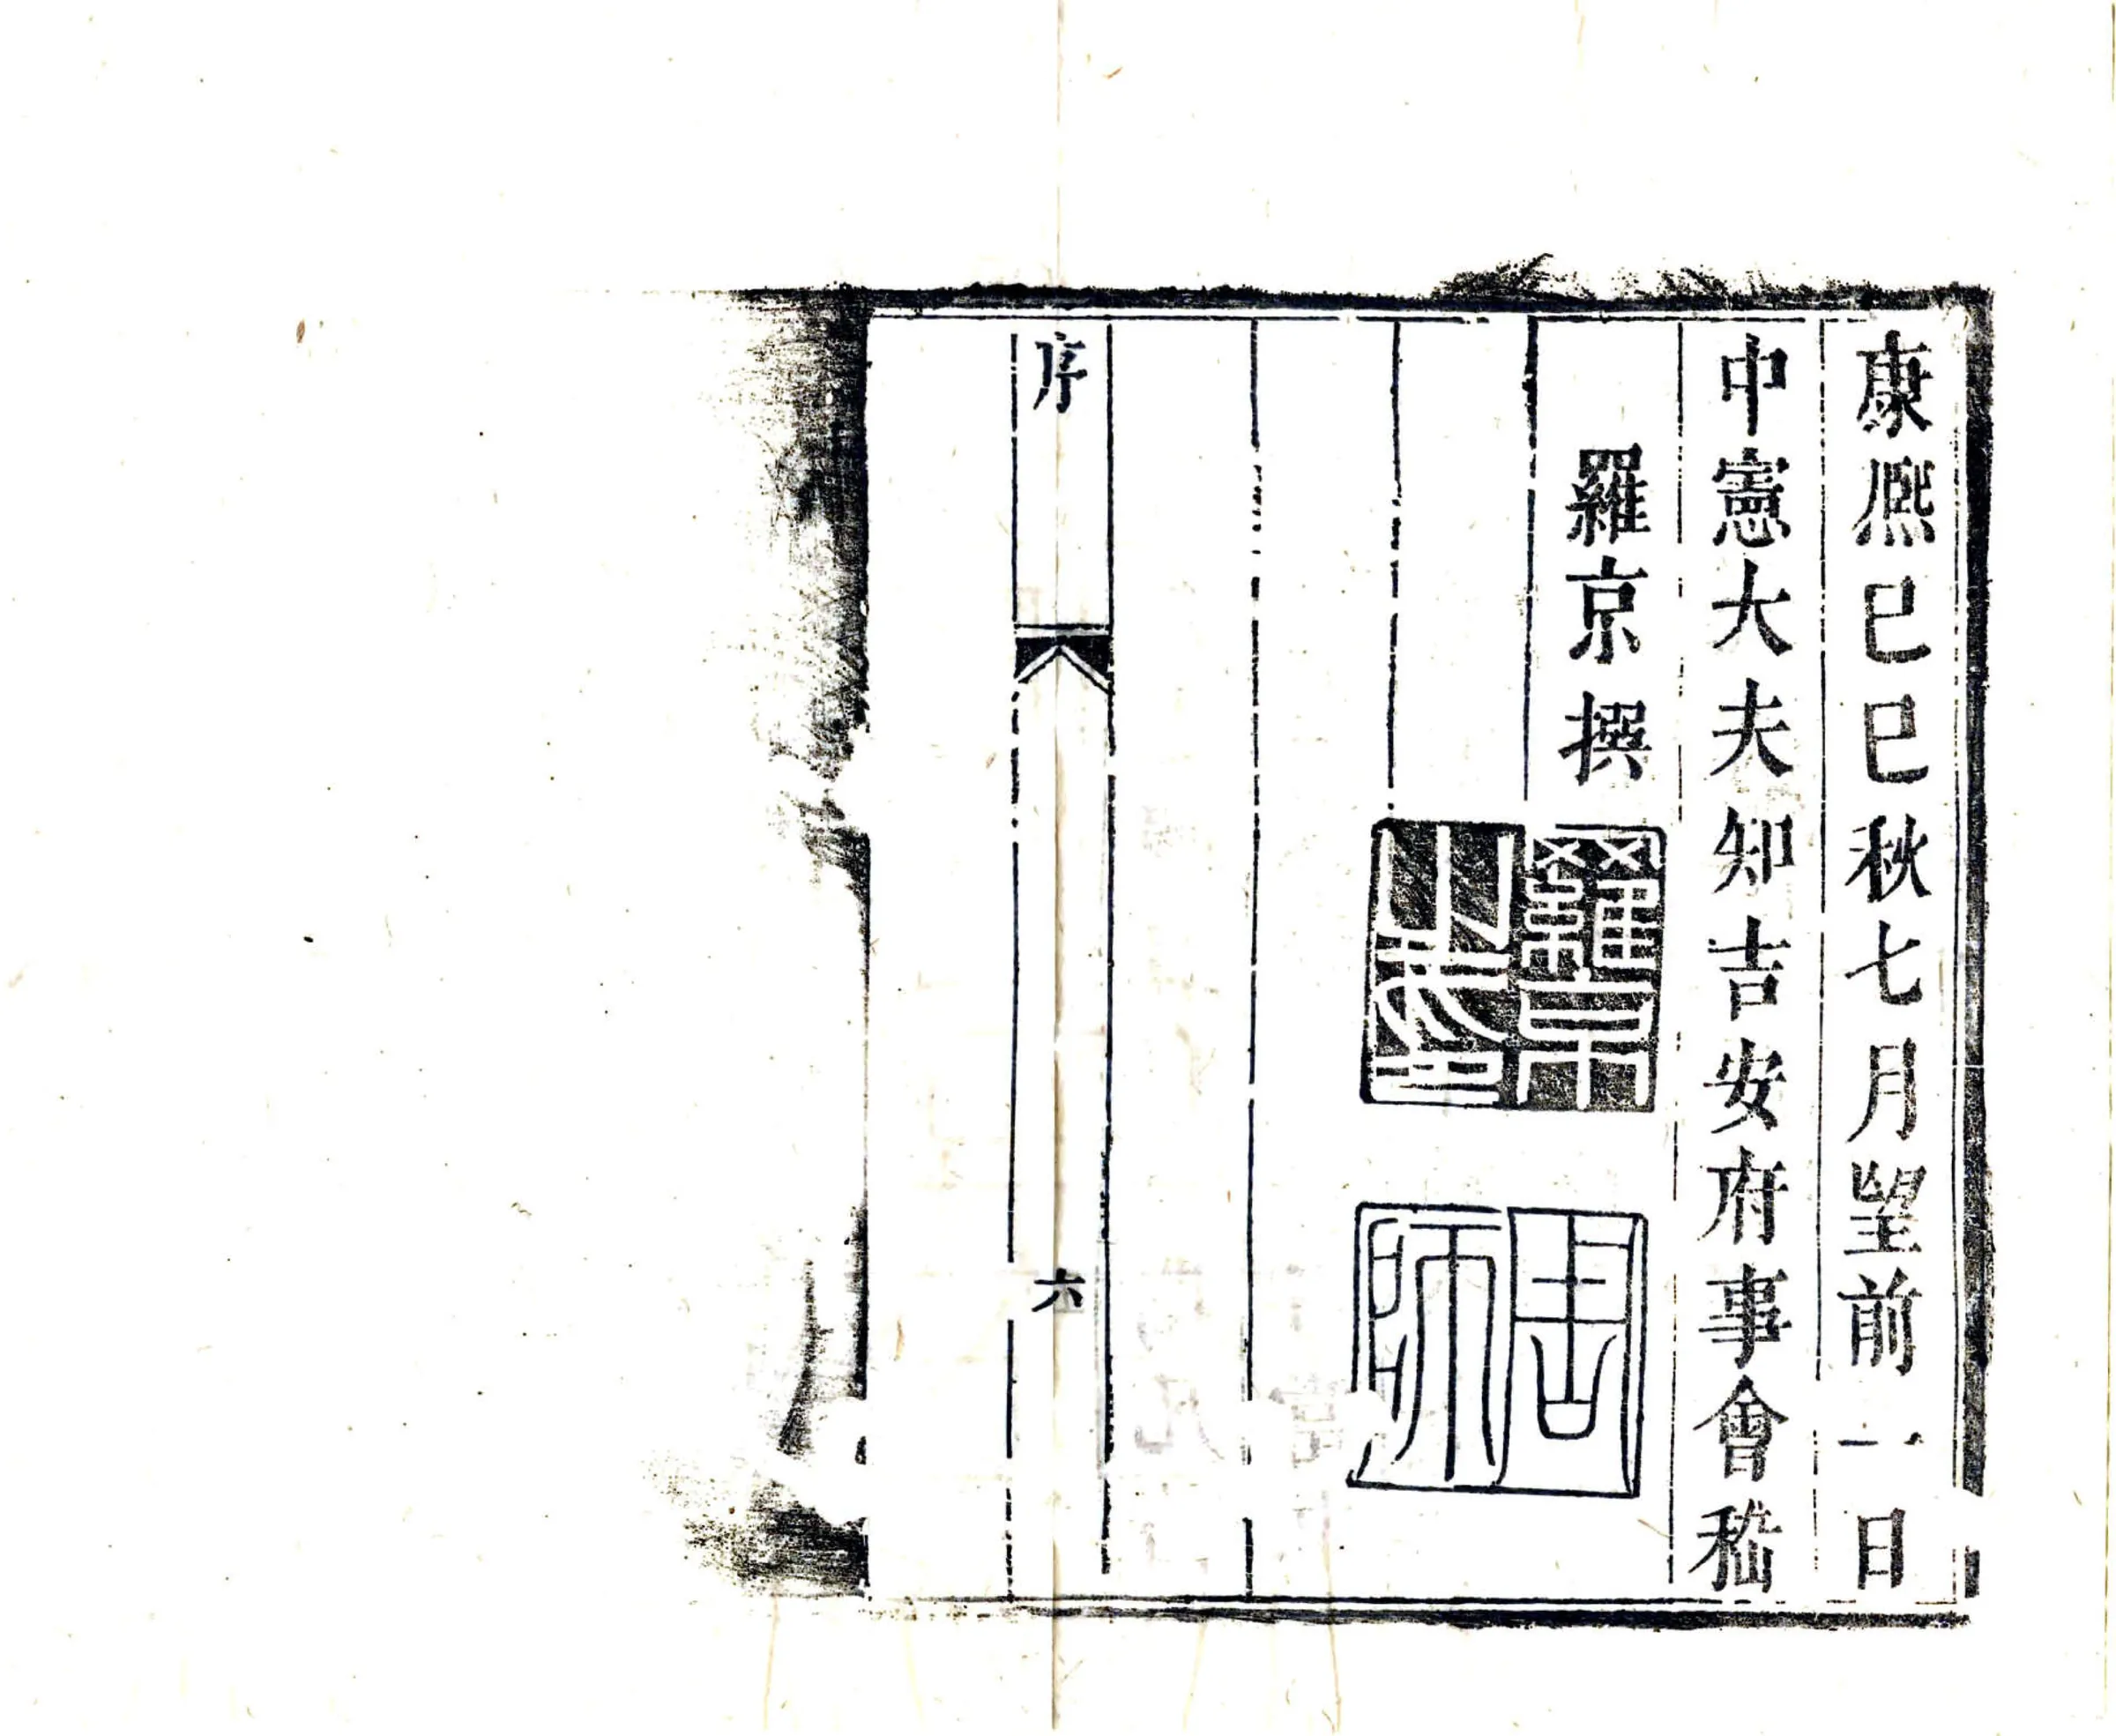 康熙己巳秋七月望前一日
中憲大夫知吉安府事會稽
羅京撰
羅京之印
周師
序
六